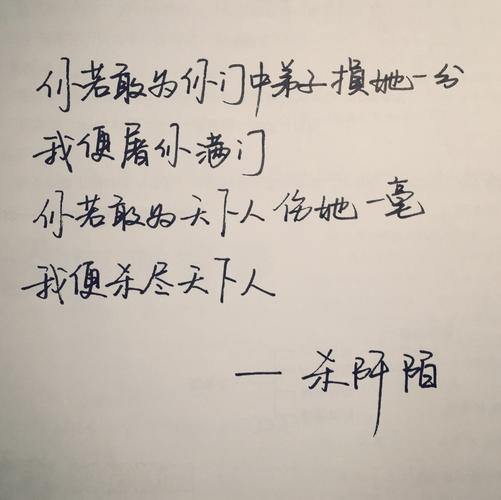 你若敢为你门中弟子損她一分
我便屠你满门
你若敢为天下人伤她一毫
我便杀尽天下人
— 杀阡陌